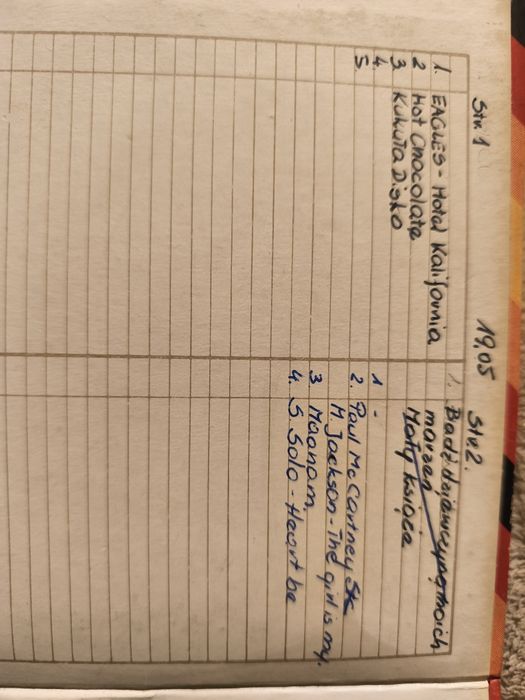 Str. 1
1. EAGLES - Hotel Kalifornia
2 Hot Chocolate
3 Kukuła Disko
4.
5
19,05
Str. 2.
1. Bądź dziewczyną moich
marzeń
Mały książe
1 -
2. Paul McCartney
M. Jackson - The girl is my.
3 Maanam,
4. S. Solo - Heart be